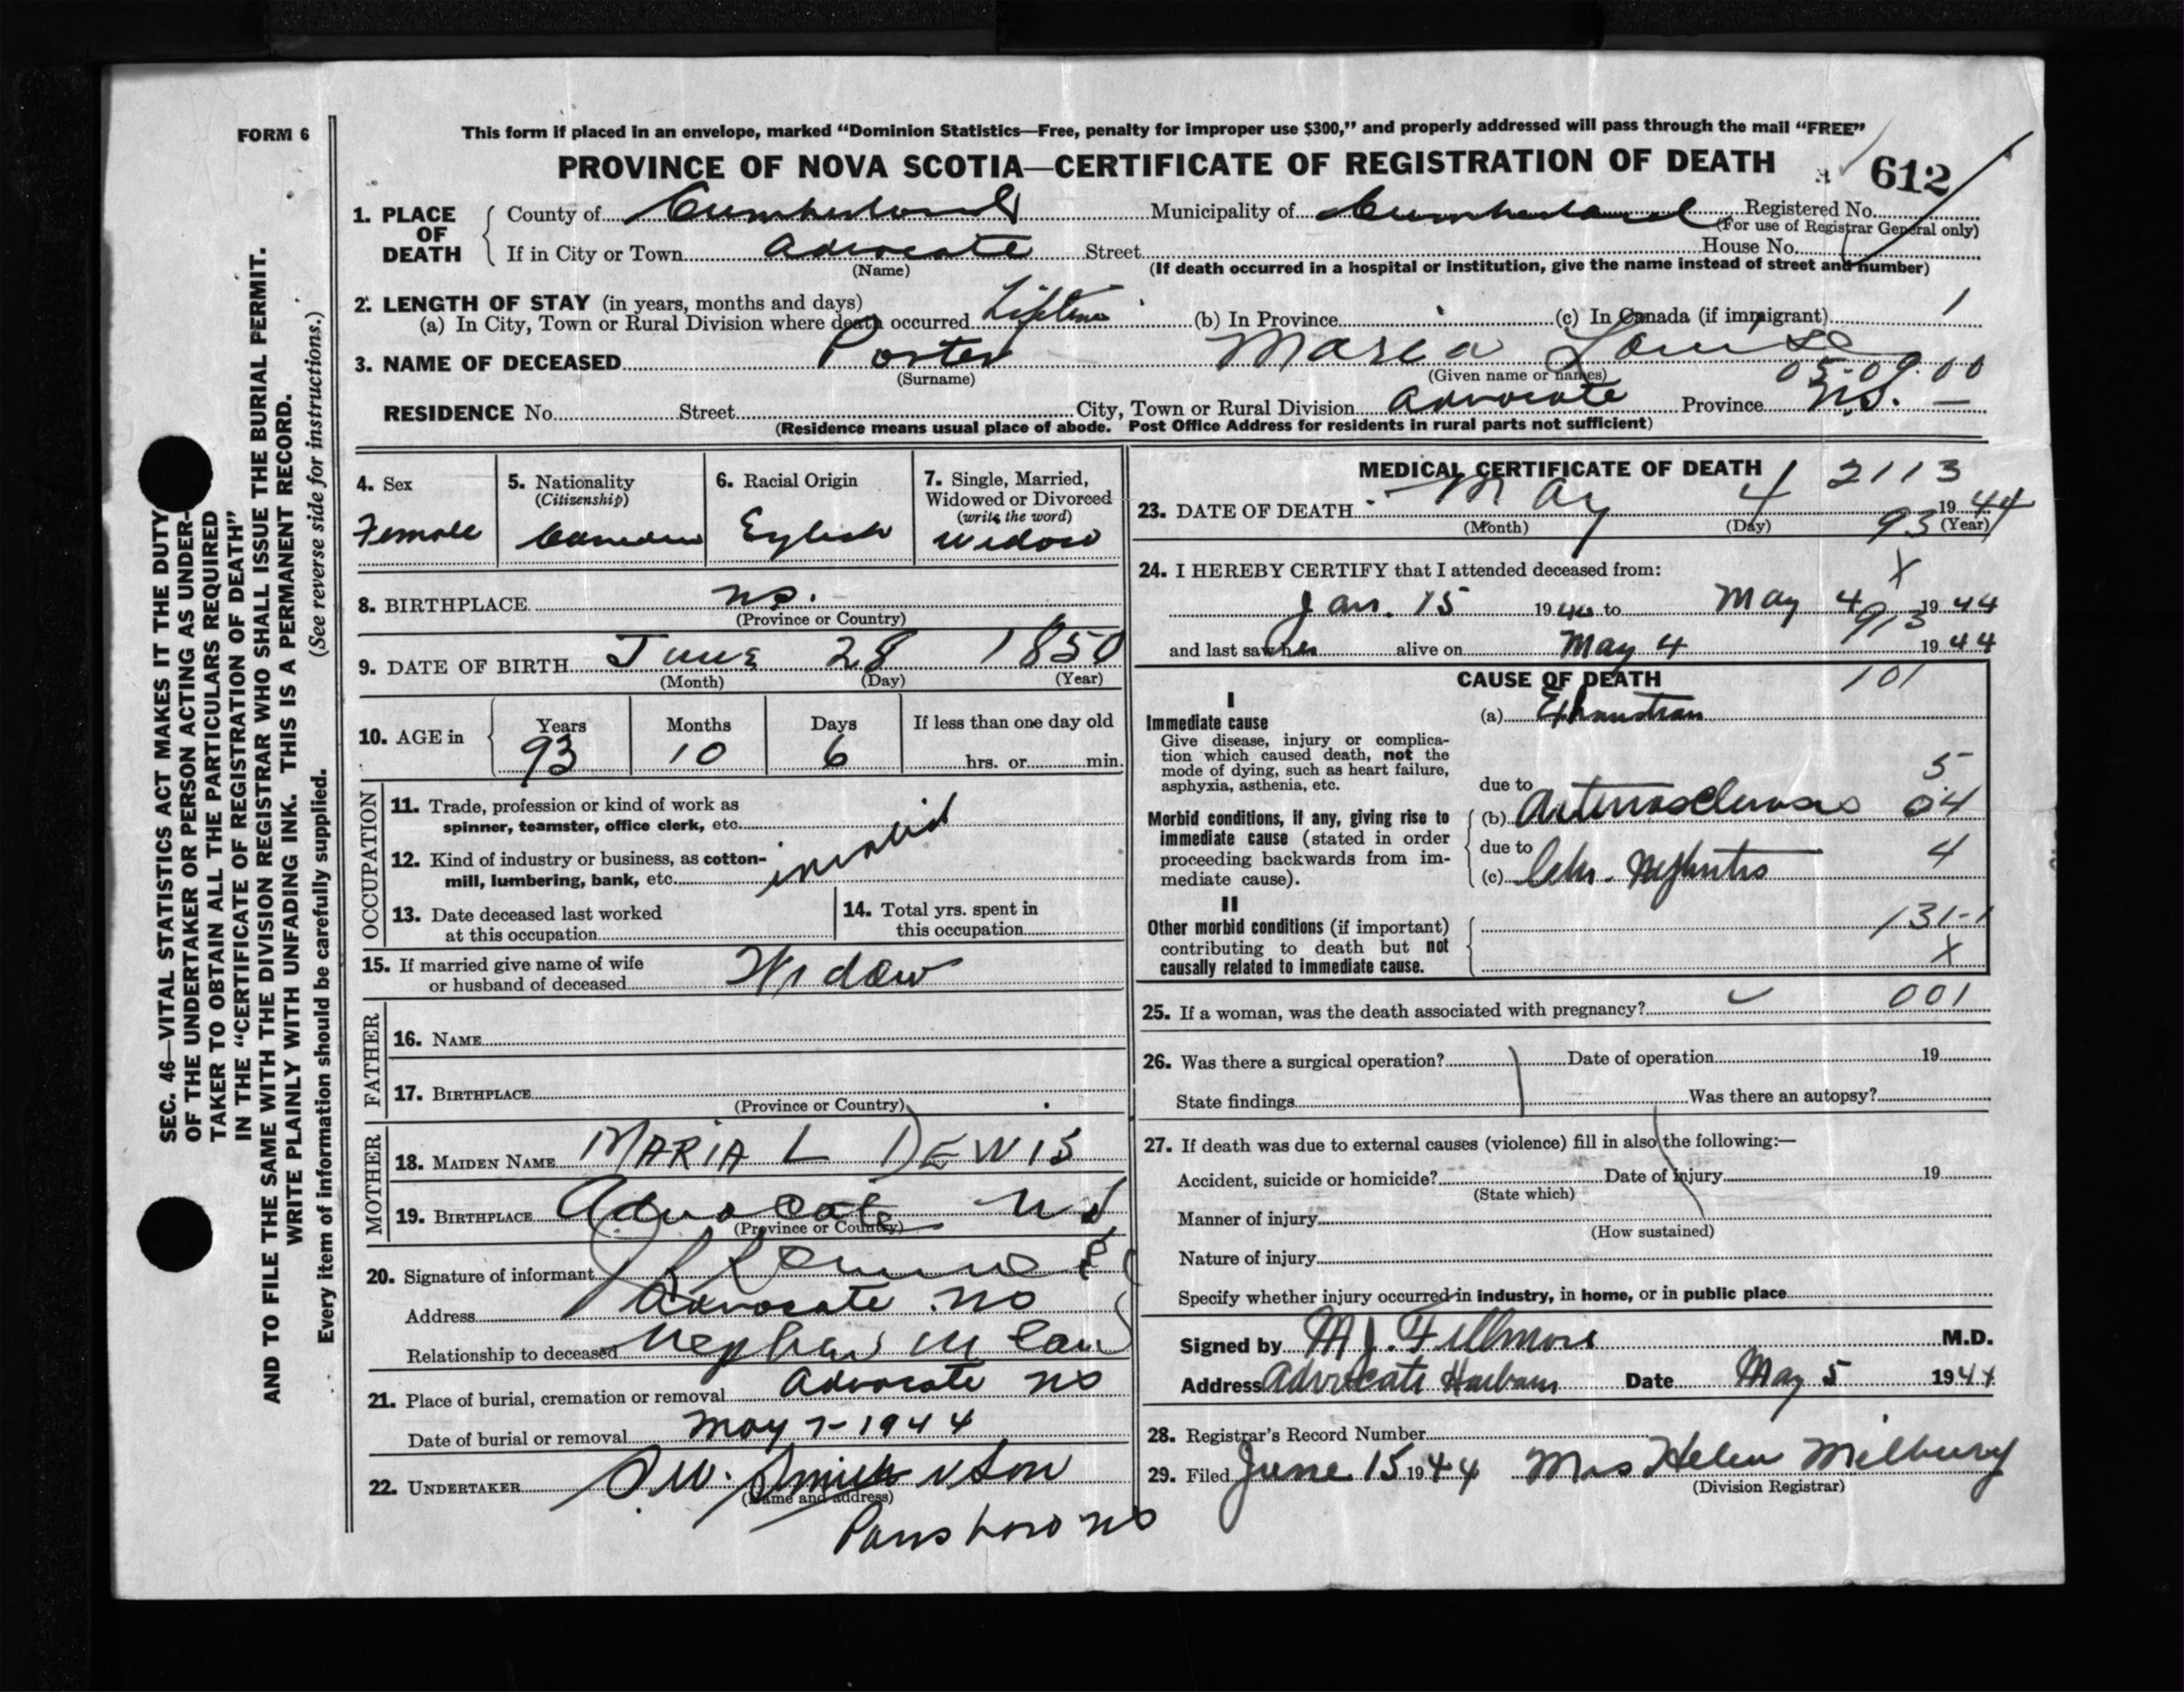 FORM 6
This form if placed in an envelope, marked “Dominion Statistics—Free, penalty for improper use $300,” and properly addressed will pass through the mail “FREE”
PROVINCE OF NOVA SCOTIA—CERTIFICATE OF REGISTRATION OF DEATH
612
1. PLACE OF DEATH
County of Cumberland Municipality of Cumberland Registered No.
(For use of Registrar General only)
If in City or Town Advocate Street House No.
(Name) (If death occurred in a hospital or institution, give the name instead of street and number)
2. LENGTH OF STAY (in years, months and days)
(a) In City, Town or Rural Division where death occurred Lifetime (b) In Province (c) In Canada (if immigrant) 1
3. NAME OF DECEASED Porter Maria Louise
(Surname) (Given name or names) 05-09.00
RESIDENCE No. Street City, Town or Rural Division Advocate Province N.S. —
(Residence means usual place of abode. Post Office Address for residents in rural parts not sufficient)
4. Sex
Female
5. Nationality
(Citizenship)
6. Racial Origin
7. Single, Married, Widowed or Divorced
(write the word)
Widow
8. BIRTHPLACE NS.
(Province or Country)
9. DATE OF BIRTH June 28 1850
(Month) (Day) (Year)
10. AGE in
Years Months Days If less than one day old
93 10 6 hrs. or min.
OCCUPATION
11. Trade, profession or kind of work as
spinner, teamster, office clerk, etc.
12. Kind of industry or business, as cotton-
mill, lumbering, bank, etc.
invalid
13. Date deceased last worked
at this occupation
14. Total yrs. spent in
this occupation
15. If married give name of wife
or husband of deceased Widow
FATHER
16. NAME
17. BIRTHPLACE
(Province or Country)
MOTHER
18. MAIDEN NAME MARIA L DEWIS
19. BIRTHPLACE Advocate NS
(Province or Country)
20. Signature of informant
Address Advocate NS
Relationship to deceased Nephew in law
21. Place of burial, cremation or removal Advocate NS
Date of burial or removal May 7-1944
22. UNDERTAKER Smith & Son
(Name and address)
Parrsboro NS
MEDICAL CERTIFICATE OF DEATH
2113
23. DATE OF DEATH May 4 1944
(Month) (Day) (Year)
93
24. I HEREBY CERTIFY that I attended deceased from:
X
Jan. 15 1944 to May 4 1944
913
and last saw her alive on May 4 1944
CAUSE OF DEATH
101
I
Immediate cause
Give disease, injury or complica-
tion which caused death, not the
mode of dying, such as heart failure,
asphyxia, asthenia, etc.
(a) Exhaustion
5
due to
Morbid conditions, if any, giving rise to
immediate cause (stated in order
proceeding backwards from im-
mediate cause).
(b) Arteriosclerosis 04
due to 4
(c) Chr. Nephritis
II
Other morbid conditions (if important)
contributing to death but not
causally related to immediate cause.
131-1
X
25. If a woman, was the death associated with pregnancy? 001
26. Was there a surgical operation? Date of operation 19
State findings Was there an autopsy?
27. If death was due to external causes (violence) fill in also the following:—
Accident, suicide or homicide? Date of injury 19
(State which)
Manner of injury
(How sustained)
Nature of injury
Specify whether injury occurred in industry, in home, or in public place
Signed by M.J. Fillmore M.D.
Address Advocate Harbour Date May 5 1944
28. Registrar's Record Number
29. Filed June 15 1944 Mrs Helen Milbury
(Division Registrar)
SEC. 46—VITAL STATISTICS ACT MAKES IT THE DUTY
OF THE UNDERTAKER OR PERSON ACTING AS UNDER-
TAKER TO OBTAIN ALL THE PARTICULARS REQUIRED
IN THE “CERTIFICATE OF REGISTRATION OF DEATH”
AND TO FILE THE SAME WITH THE DIVISION REGISTRAR WHO SHALL ISSUE THE BURIAL PERMIT.
WRITE PLAINLY WITH UNFADING INK. THIS IS A PERMANENT RECORD.
Every item of information should be carefully supplied. (See reverse side for instructions.)